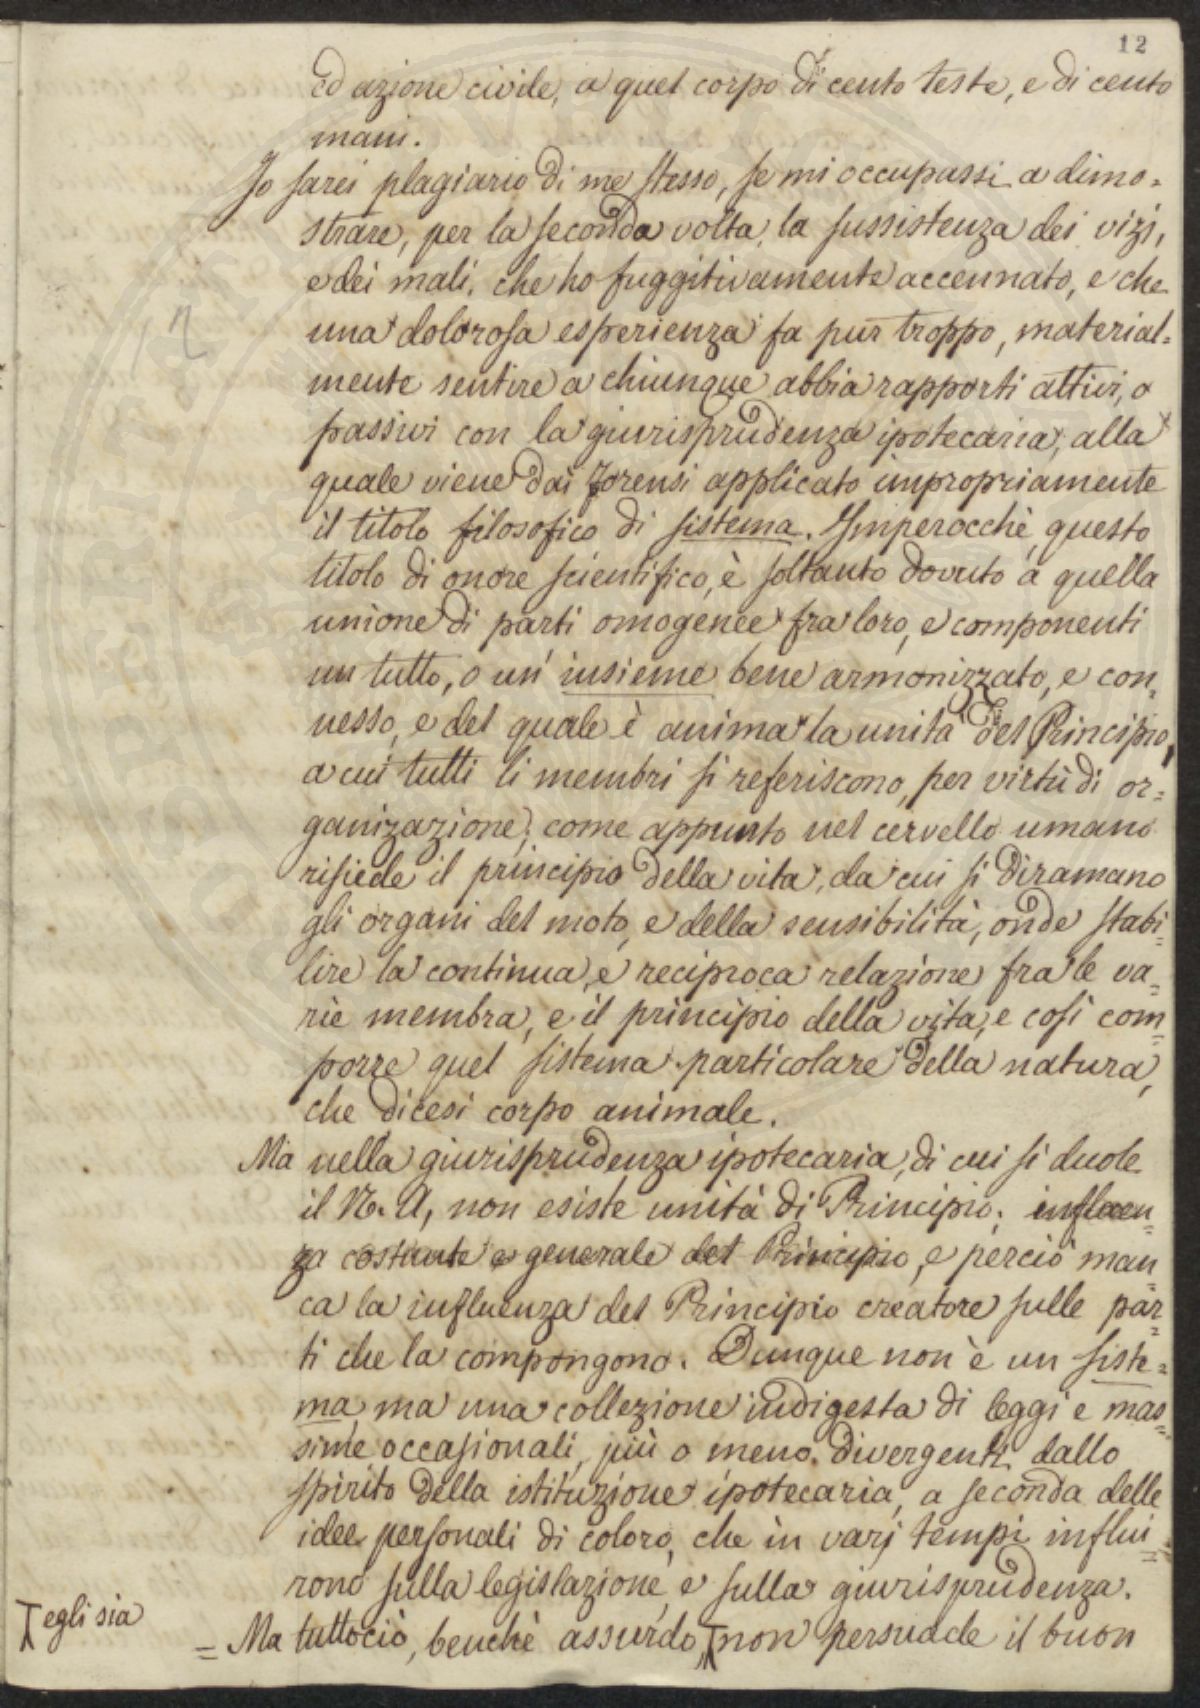 12
ed azione civile, a quel corpo di cento teste, e di cento
mani.
Io sarei plagiario di me stesso, se mi occupassi a dimo=
strare, per la seconda volta, la sussistenza dei vizj,
e dei mali, che ho fuggitivamente accennato, e che
una dolorosa esperienza fa pur troppo, material=
mente sentire a chiunque abbia rapporti attivi, o
passivi con la giurisprudenza ipotecaria, alla
quale viene dai Forensi applicato impropriamente
il titolo filosofico di sistema. Imperocchè, questo
titolo di onore scientifico, è soltanto dovuto a quella
unione di parti omogenee fra loro, e componenti
un tutto, o un' insieme bene armonizzato, e con=
nesso, e del quale è anima la unità del Principio,
a cui tutti li membri si referiscono, per virtù di or=
ganizazione; come appunto nel cervello umano
risiede il principio della vita, da cui si diramano
gli organi del moto, e della sensibilità, onde stabi=
lire la continua, e reciproca relazione fra le va=
rie membra, e il principio della vita, e così com=
porre quel sistema particolare della natura,
che dicesi corpo animale.
Ma nella giurisprudenza ipotecaria, di cui si duole
il N. A, non esiste unità di Principio; influen=
za costante e generale del Principio, e perciò man=
ca la influenza del Principio creatore sulle par=
ti che la compongono. Dunque non è un siste=
ma, ma una collezione indigesta di leggi e mas=
sime occasionali, più o meno divergenti dallo
spirito della istituzione ipotecaria, a seconda delle
idee personali di coloro, che in varj tempi influi=
rono sulla legislazione, e sulla giurisprudenza.
egli sia
= Ma tuttociò, benchè assurdo, non persuade il buon